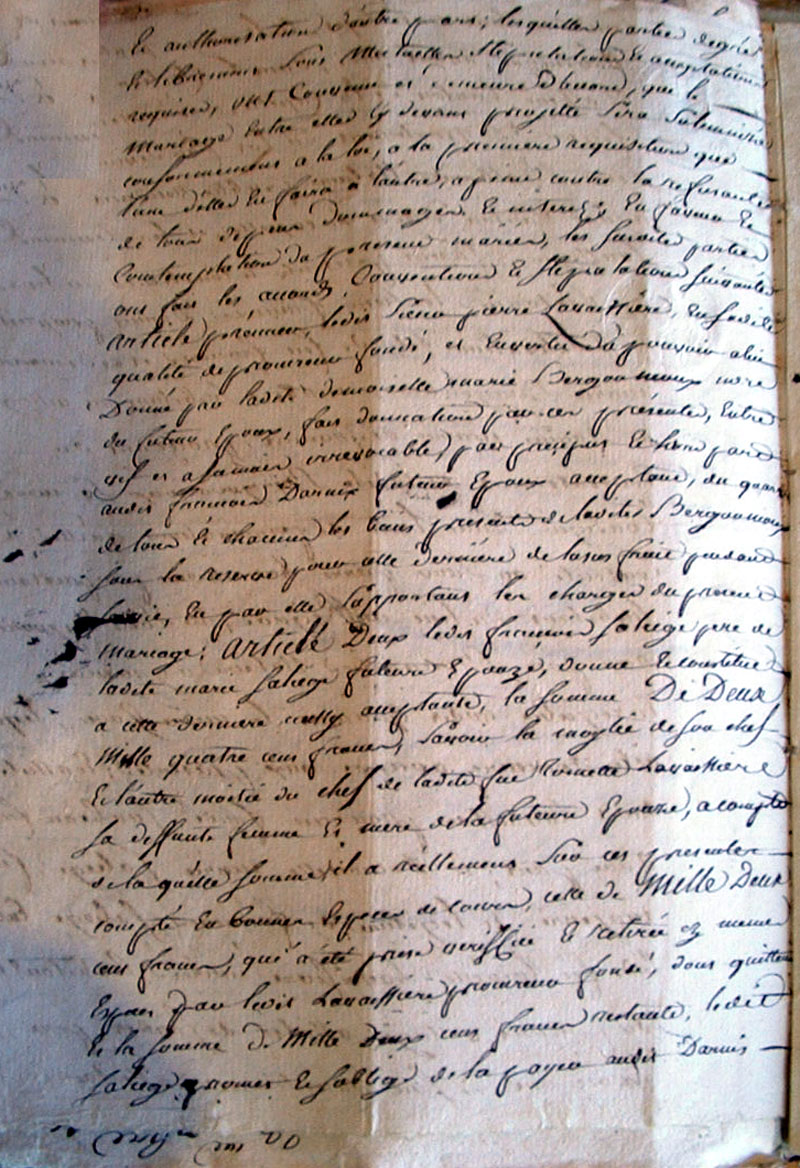 Et authorisation d'autre part; lesquelles parties de gré
Et librement sous mutuelles stipulations Et acceptations
requises, ont convenu et demeuré d'accord, que le
mariage Entre elles cy devant projetté sera solemnisé
conformement a la loi, a la premiere requisition que
l'une d'elles En faira a l'autre, a peine contre la refusante
de tous dépens dommages Et interets; En faveur Et
Contemplation du present mariage, les susdites parties
ont fait les accords, Conventions Et stipulations suivantes
Article premier, ledit Sieur pierre Lavaissière, En sadite
qualité de procureur fondé, et En vertu du pouvoir a lui
Donné par ladite demoiselle marie Bergounioux mere
du futur Epoux, fait donnation par ces présentes, Entre
vifs et a jamais irrevocable, par préciput Et hors part
audit francois Darnis futur Epoux acceptant, du quart
de tous Et chacuns les biens presents de ladite Bergounioux
sous la reserve pour cette derniere de la jouissance pendant
sa vie, En par elle supportant les charges du present
mariage; article Deux ledit francois Saliège pere de
ladite marie Saliège future Epouze, donne Et constitue
a cette derniere icelle acceptante, la somme De Deux
Mille quatre cens francs, savoir la moytié de son chef
Et l'autre moitié du chef de ladite feue Lavaissière
sa deffunte femme Et mere de la future Epouze, a compte
de la quelle somme, il a reellement sur ces presentes
compté En bonnes Especes de cours, celle de Mille Deux
cens francs, qui a été prise verifiée Et retirée cy memes
Especes par ledit Lavaissière procureur fondé, dont quitte
Et la somme de Mille Deux cens francs restante, ledit
Saliège promet Et s'oblige de la payer audit Darnis